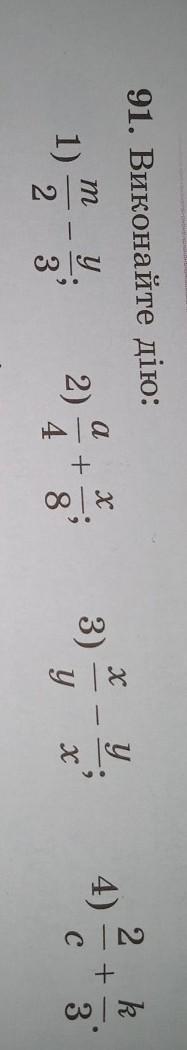 91. Виконайте дію:
1) m/2 − y/3; 2) a/4 + x/8; 3) x/y − y/x; 4) 2/c + k/3.